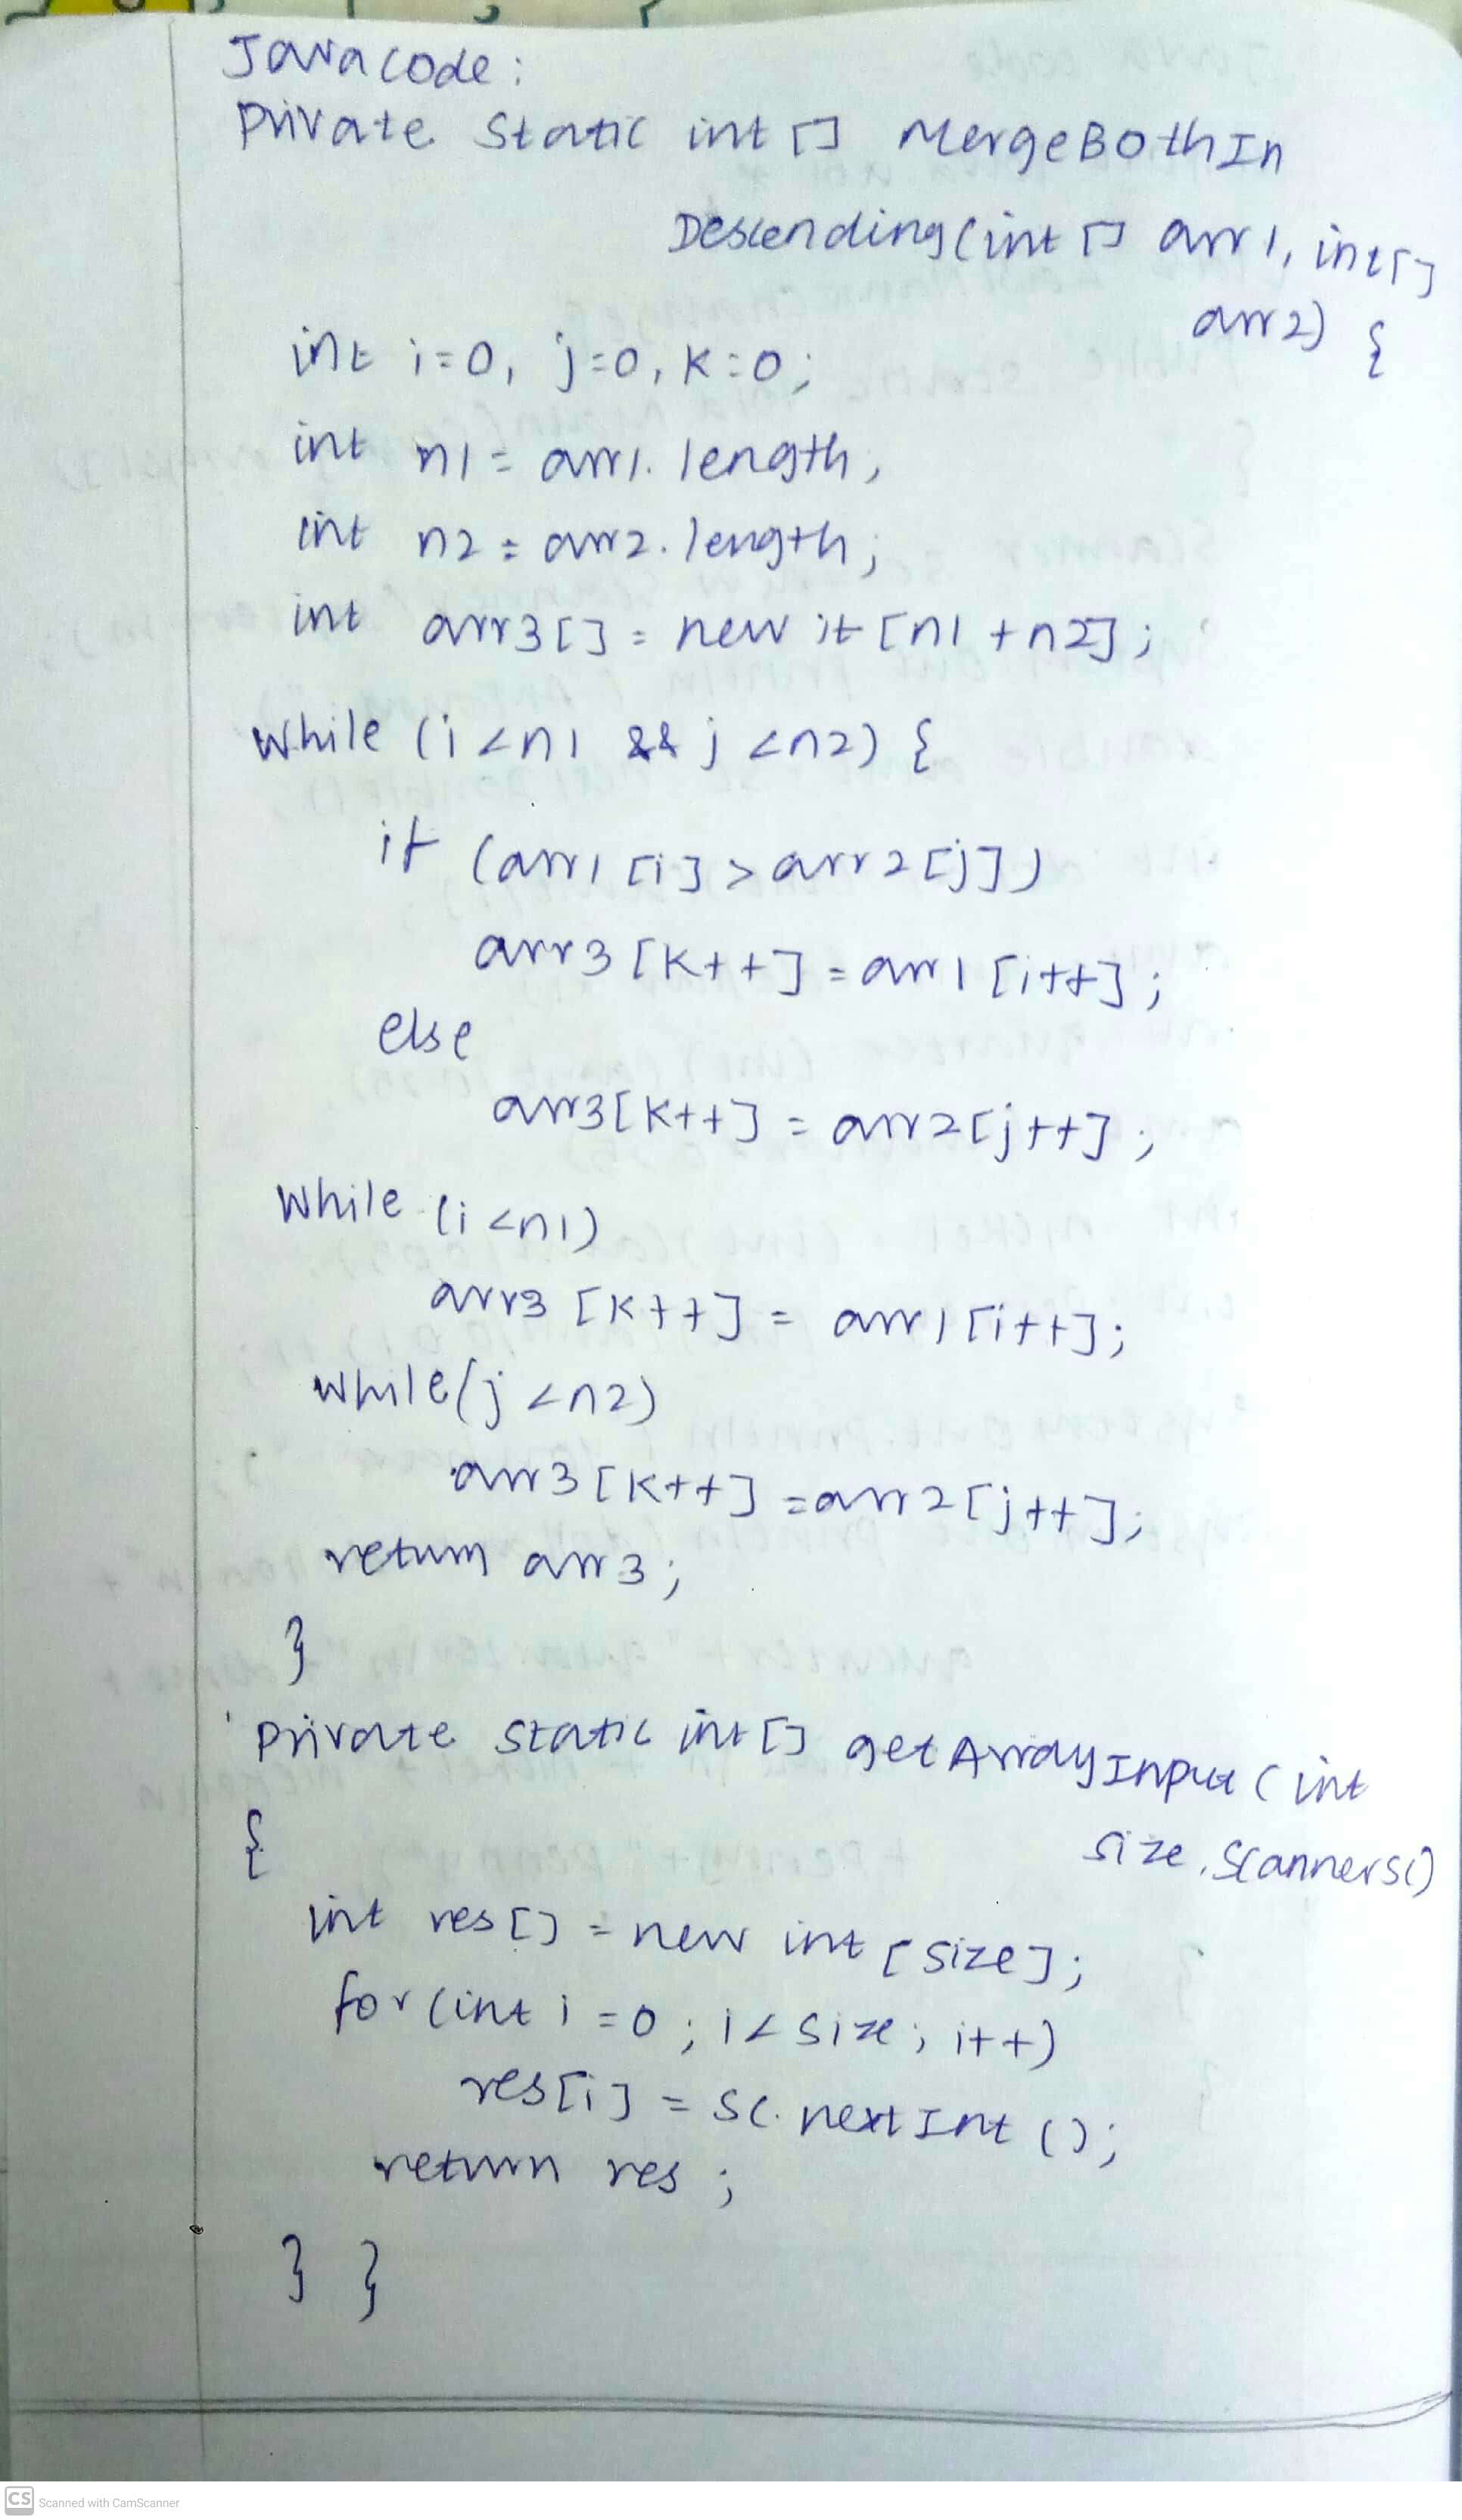 Java code:
Private Static int [] MergeBothIn
Descending (int [] arr1, int[]
arr2) {
int i=0, j=0, k=0;
int n1 = arr1. length,
int n2 = arr2. length;
int arr3[] = new it [n1 +n2];
while (i <n1 && j <n2) {
if (arr1 [i] > arr2[j])
arr3 [k++] = arr1 [i++];
else
arr3[k++] = arr2[j++];
while (i <n1)
arr3 [k++] = arr1[i++];
while(j <n2)
arr3 [k++] =arr2[j++];
return arr3;
}
Private static int [] getArrayInput (int
{ size, Scannersc)
int res [] = new int [size];
for (int i =0; i< size; i++)
res[i] = sc. nextInt ();
return res;
} }
CS Scanned with CamScanner